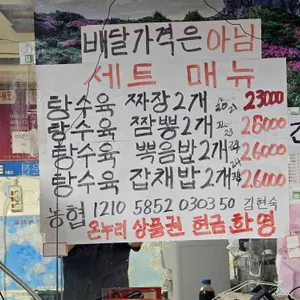 배달가격은 아님
세트 메뉴
탕수육 짜장2개 23000
탕수육 짬뽕2개 25000
탕수육 볶음밥2개 26000
탕수육 잡채밥2개 26000
농협 1210 5852 030350 김현숙
온누리 상품권 현금 환영